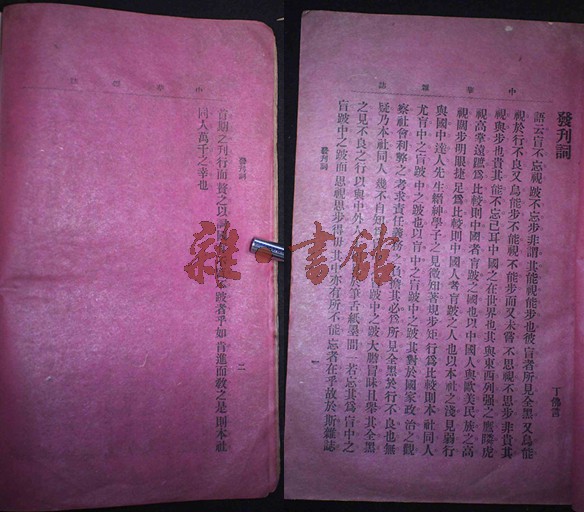 中華雜誌
發刊詞
丁佛言
語云盲不忘視跛不忘步非謂其能視能步也彼盲者所見全黑又烏能
視於行不良又烏能步不能視不能步而又未嘗不思視不思步非貴其
視與步也貴其能不忘己耳中國之在世界也其與東西列强之鷹瞵虎
視高掌遠蹠爲比較則中國者盲跛之國也以中國人與歐美民族之高
視闊步明眼捷足爲比較則中國人者盲跛之人也以本社之淺見弱行
與國中達人先生縉紳學子之見微知著規步矩行爲比較則本社同人
尤盲中之盲跛中之跛也以盲中之盲跛中之跛其對於國家政治之觀
察社會利弊之考求責任義務之負擔其必爲所見全黑於行不良也無
疑乃本社同人幾不自知 跛中之跛大膽冒昧且舉其全黑
之見不良之行以與中外人 於筆舌紙墨間一若忘其爲盲中之
盲跛中之跛而思視思步得毋其中亦有所不能忘者在乎故於斯雜誌
發刊詞
一
中華雜誌
首期之刊行而贅之以 跛者乎如肯進而敎之是則本社
同人萬千之幸也
發刊詞
二
雜·書館